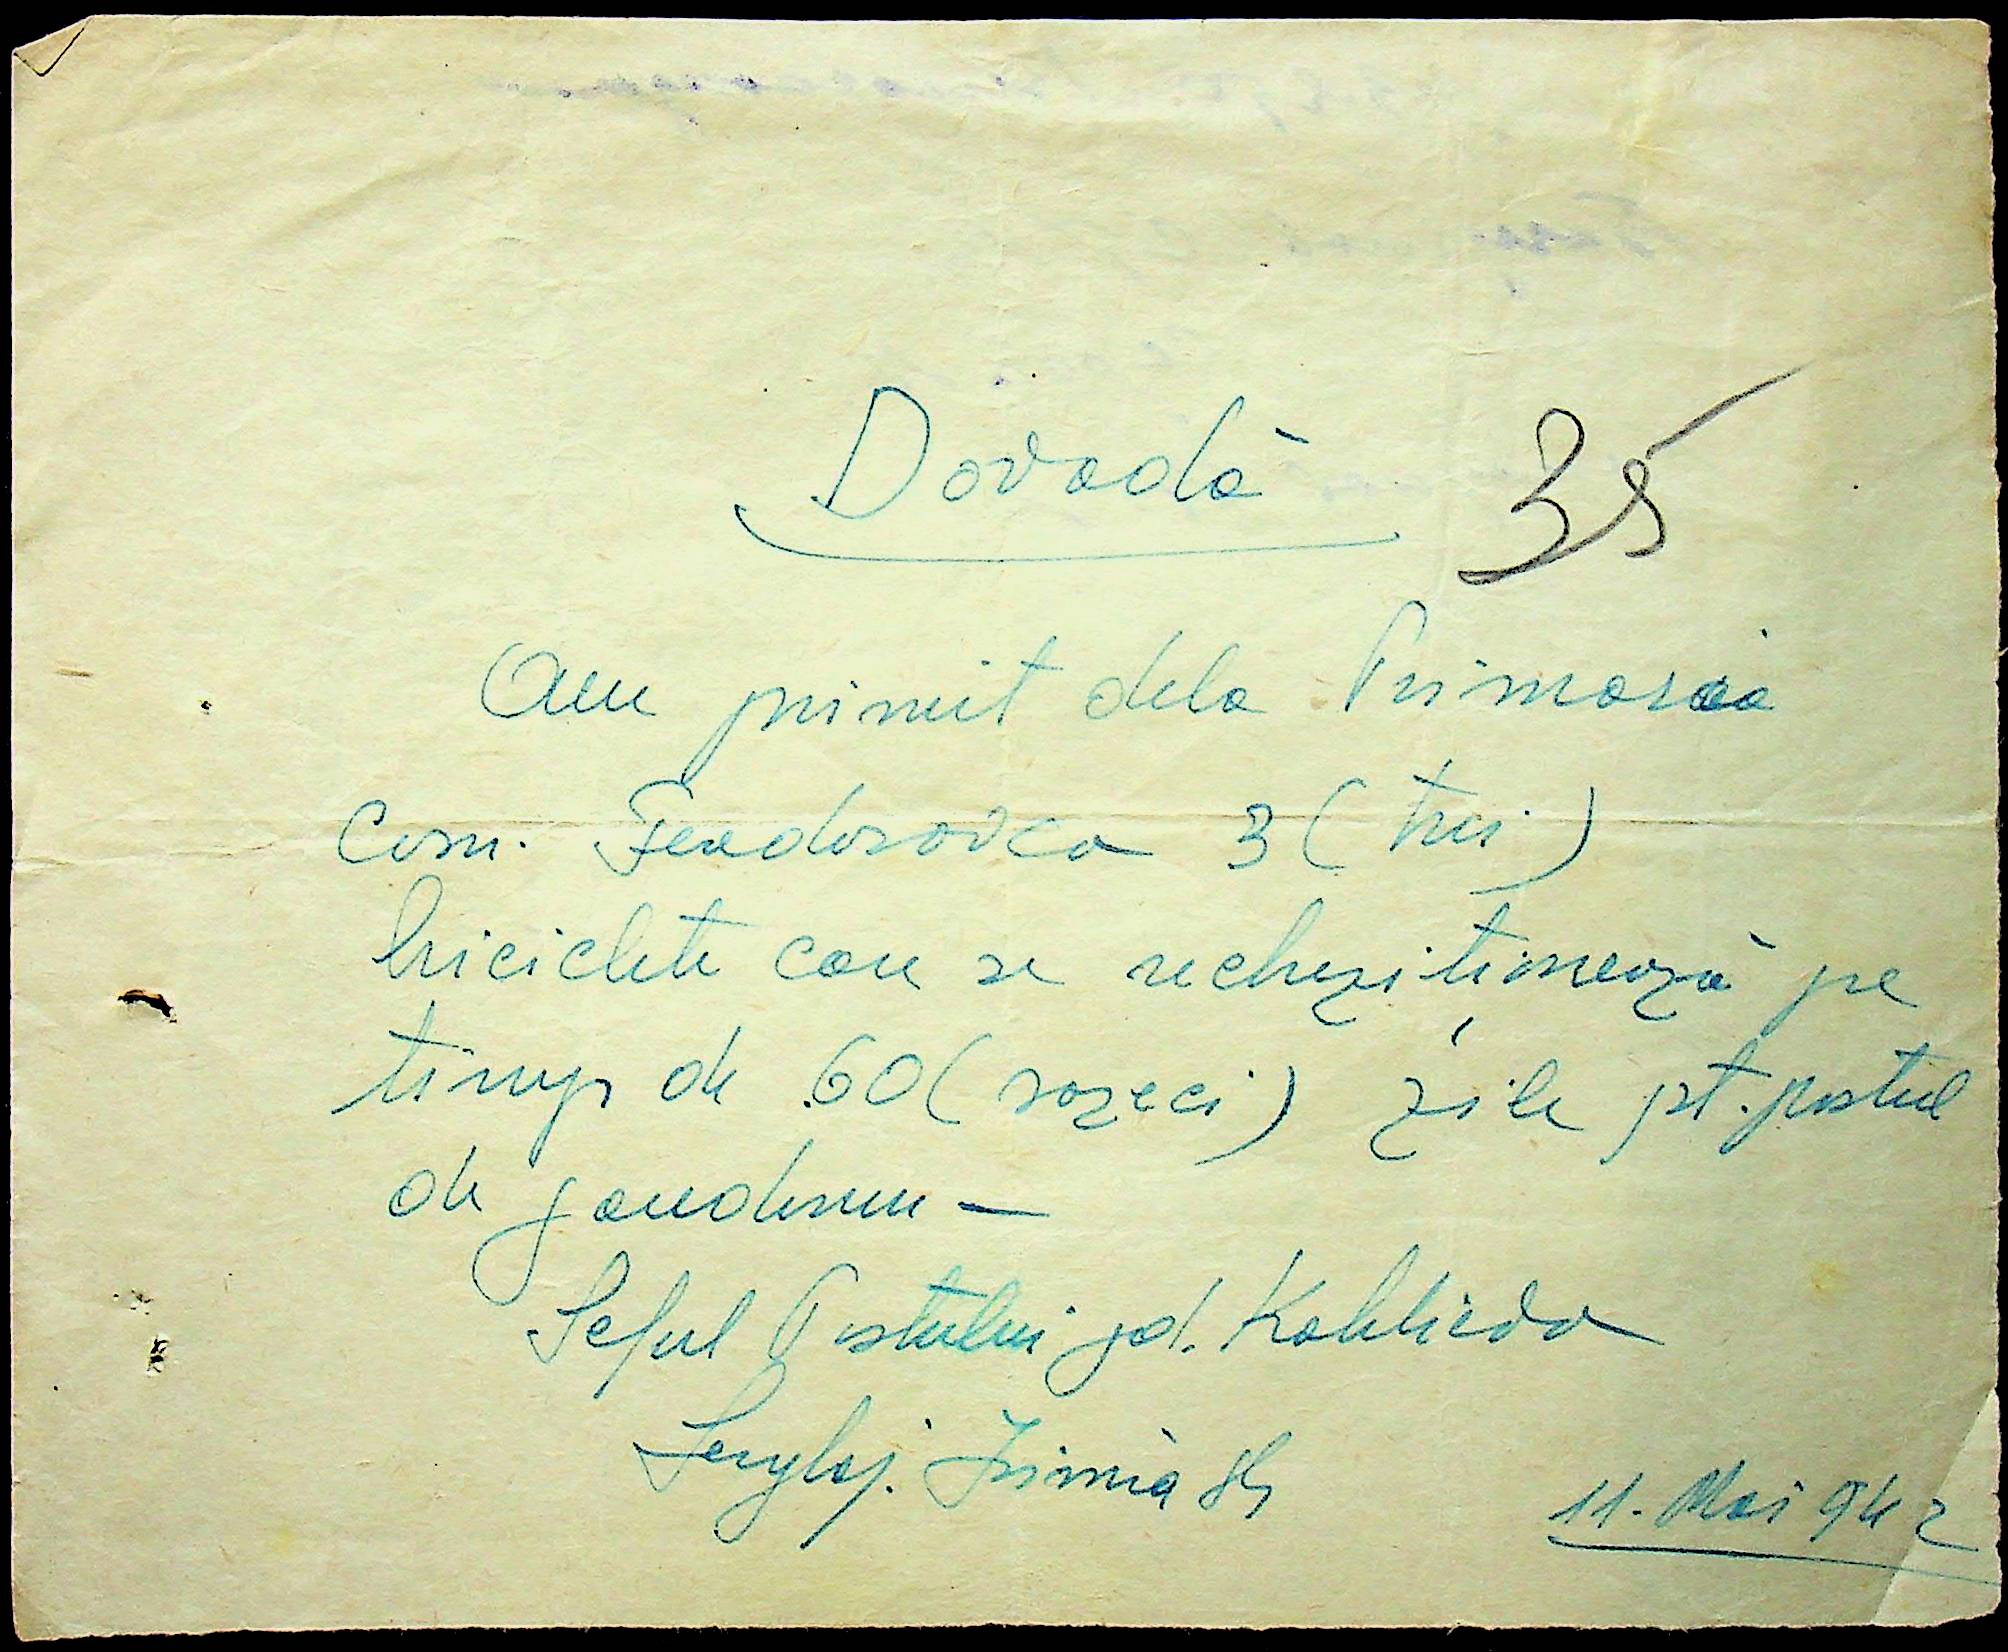 Dovadă
35
Am primit dela Primaria
com. Feodorovca 3 (trei)
biciclete care se rechizitionează pe
timp de 60 (sazeci) zile pt. postul
de jandarmi —
Seful Postului jd.
Serg. Irimia
11. Mai 942